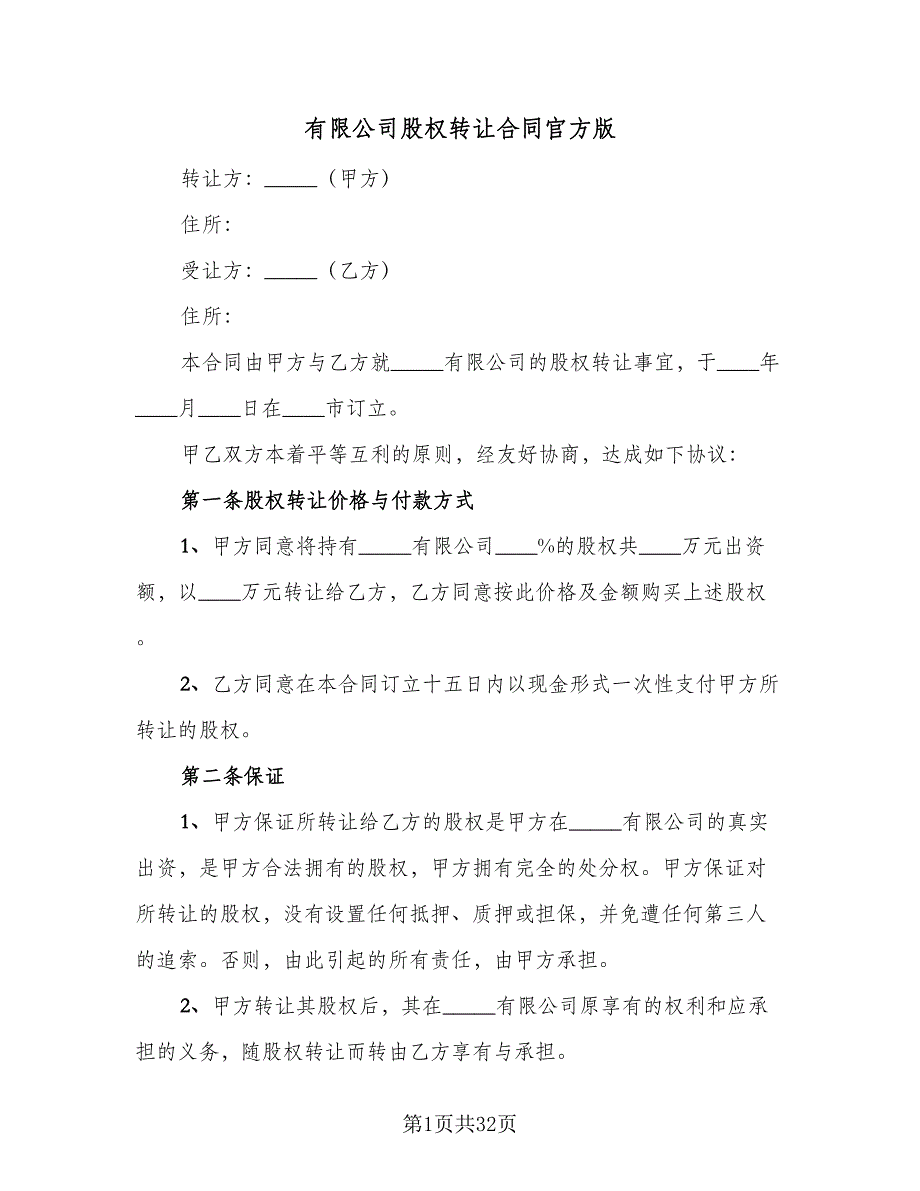 有限公司股权转让合同官方版
转让方：_____（甲方）
住所：
受让方：_____（乙方）
住所：
本合同由甲方与乙方就_____有限公司的股权转让事宜，于____年
____月____日在____市订立。
甲乙双方本着平等互利的原则，经友好协商，达成如下协议：
第一条股权转让价格与付款方式
1、甲方同意将持有_____有限公司____%的股权共____万元出资
额，以____万元转让给乙方，乙方同意按此价格及金额购买上述股权
。
2、乙方同意在本合同订立十五日内以现金形式一次性支付甲方所
转让的股权。
第二条保证
1、甲方保证所转让给乙方的股权是甲方在_____有限公司的真实
出资，是甲方合法拥有的股权，甲方拥有完全的处分权。甲方保证对
所转让的股权，没有设置任何抵押、质押或担保，并免遭任何第三人
的追索。否则，由此引起的所有责任，由甲方承担。
2、甲方转让其股权后，其在_____有限公司原享有的权利和应承
担的义务，随股权转让而转由乙方享有与承担。
第1页共32页